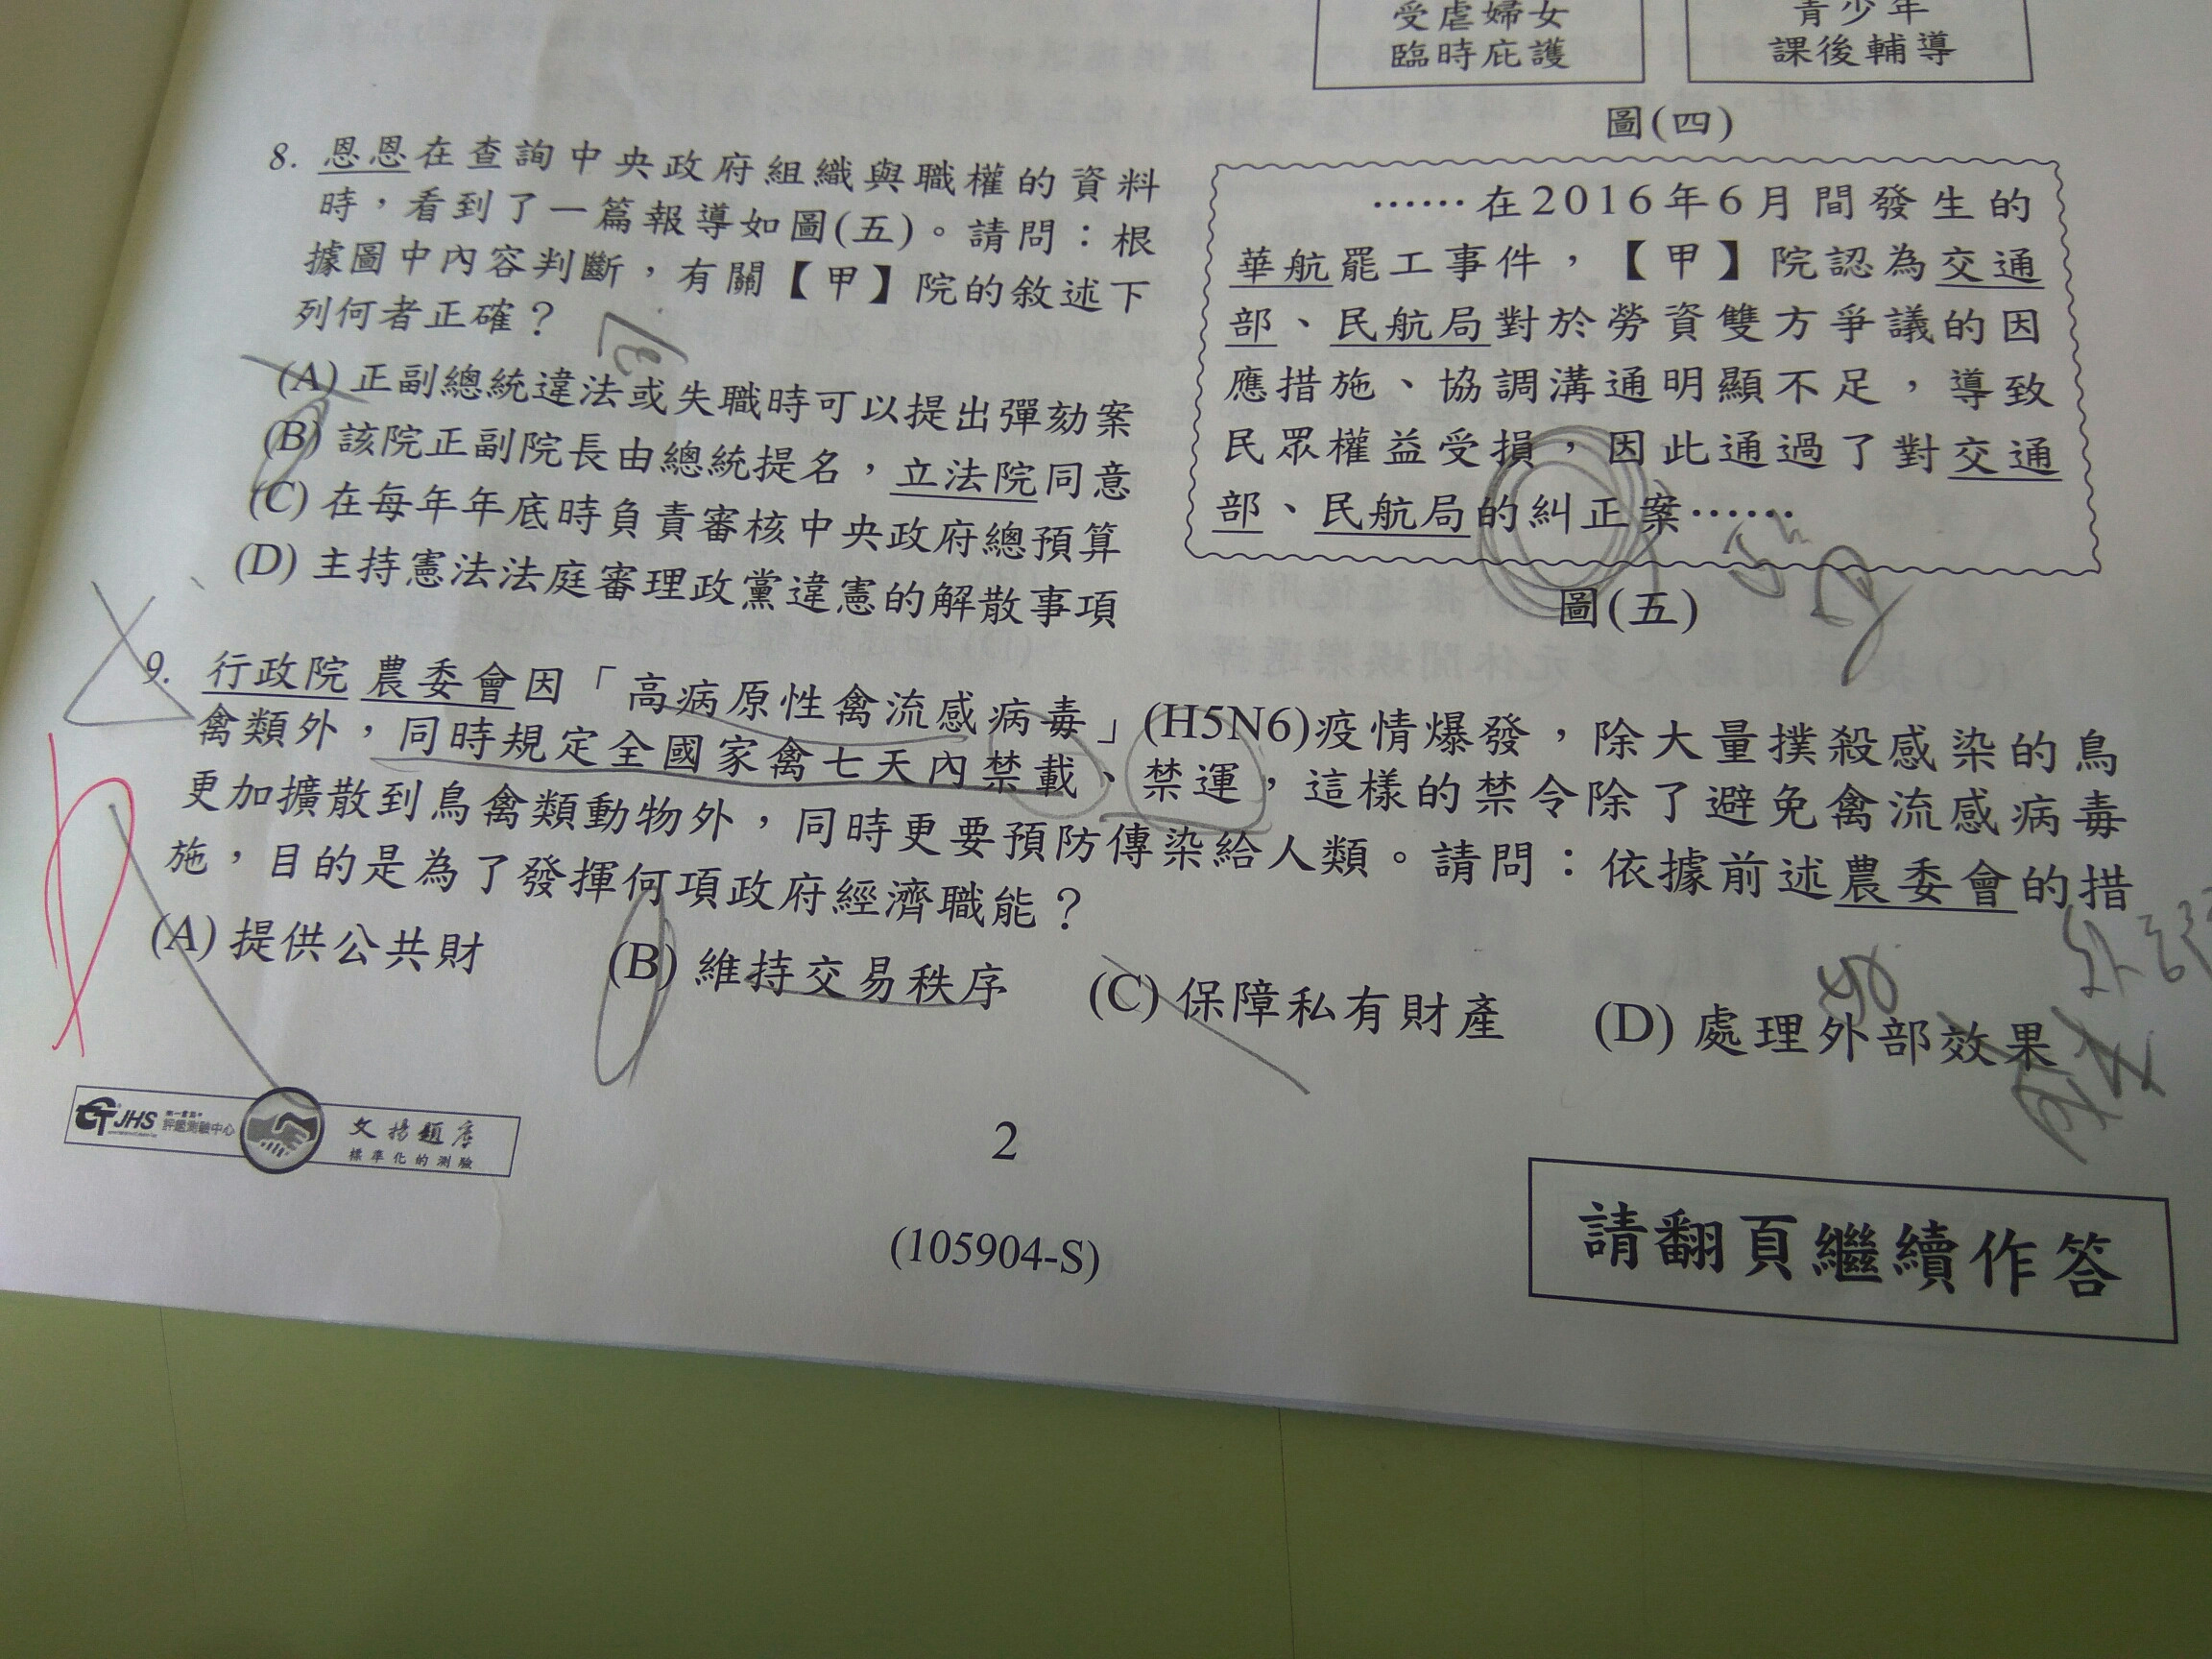 受虐婦女
臨時庇護
青少年
課後輔導
圖(四)
8. 恩恩在查詢中央政府組織與職權的資料
時，看到了一篇報導如圖(五)。請問：根
據圖中內容判斷，有關【甲】院的敘述下
列何者正確？
(A) 正副總統違法或失職時可以提出彈劾案
(B) 該院正副院長由總統提名，立法院同意
(C) 在每年年底時負責審核中央政府總預算
(D) 主持憲法法庭審理政黨違憲的解散事項
……在2016年6月間發生的
華航罷工事件，【甲】院認為交通
部、民航局對於勞資雙方爭議的因
應措施、協調溝通明顯不足，導致
民眾權益受損，因此通過了對交通
部、民航局的糾正案……
圖(五)
9. 行政院 農委會因「高病原性禽流感病毒」(H5N6)疫情爆發，除大量撲殺感染的鳥
禽類外，同時規定全國家禽七天內禁載、禁運，這樣的禁令除了避免禽流感病毒
更加擴散到鳥禽類動物外，同時更要預防傳染給人類。請問：依據前述農委會的措
施，目的是為了發揮何項政府經濟職能？
(A) 提供公共財 (B) 維持交易秩序 (C) 保障私有財產 (D) 處理外部效果
JHS 評鑑測驗中心
文揚題庫
標準化的測驗
2
(105904-S)
請翻頁繼續作答